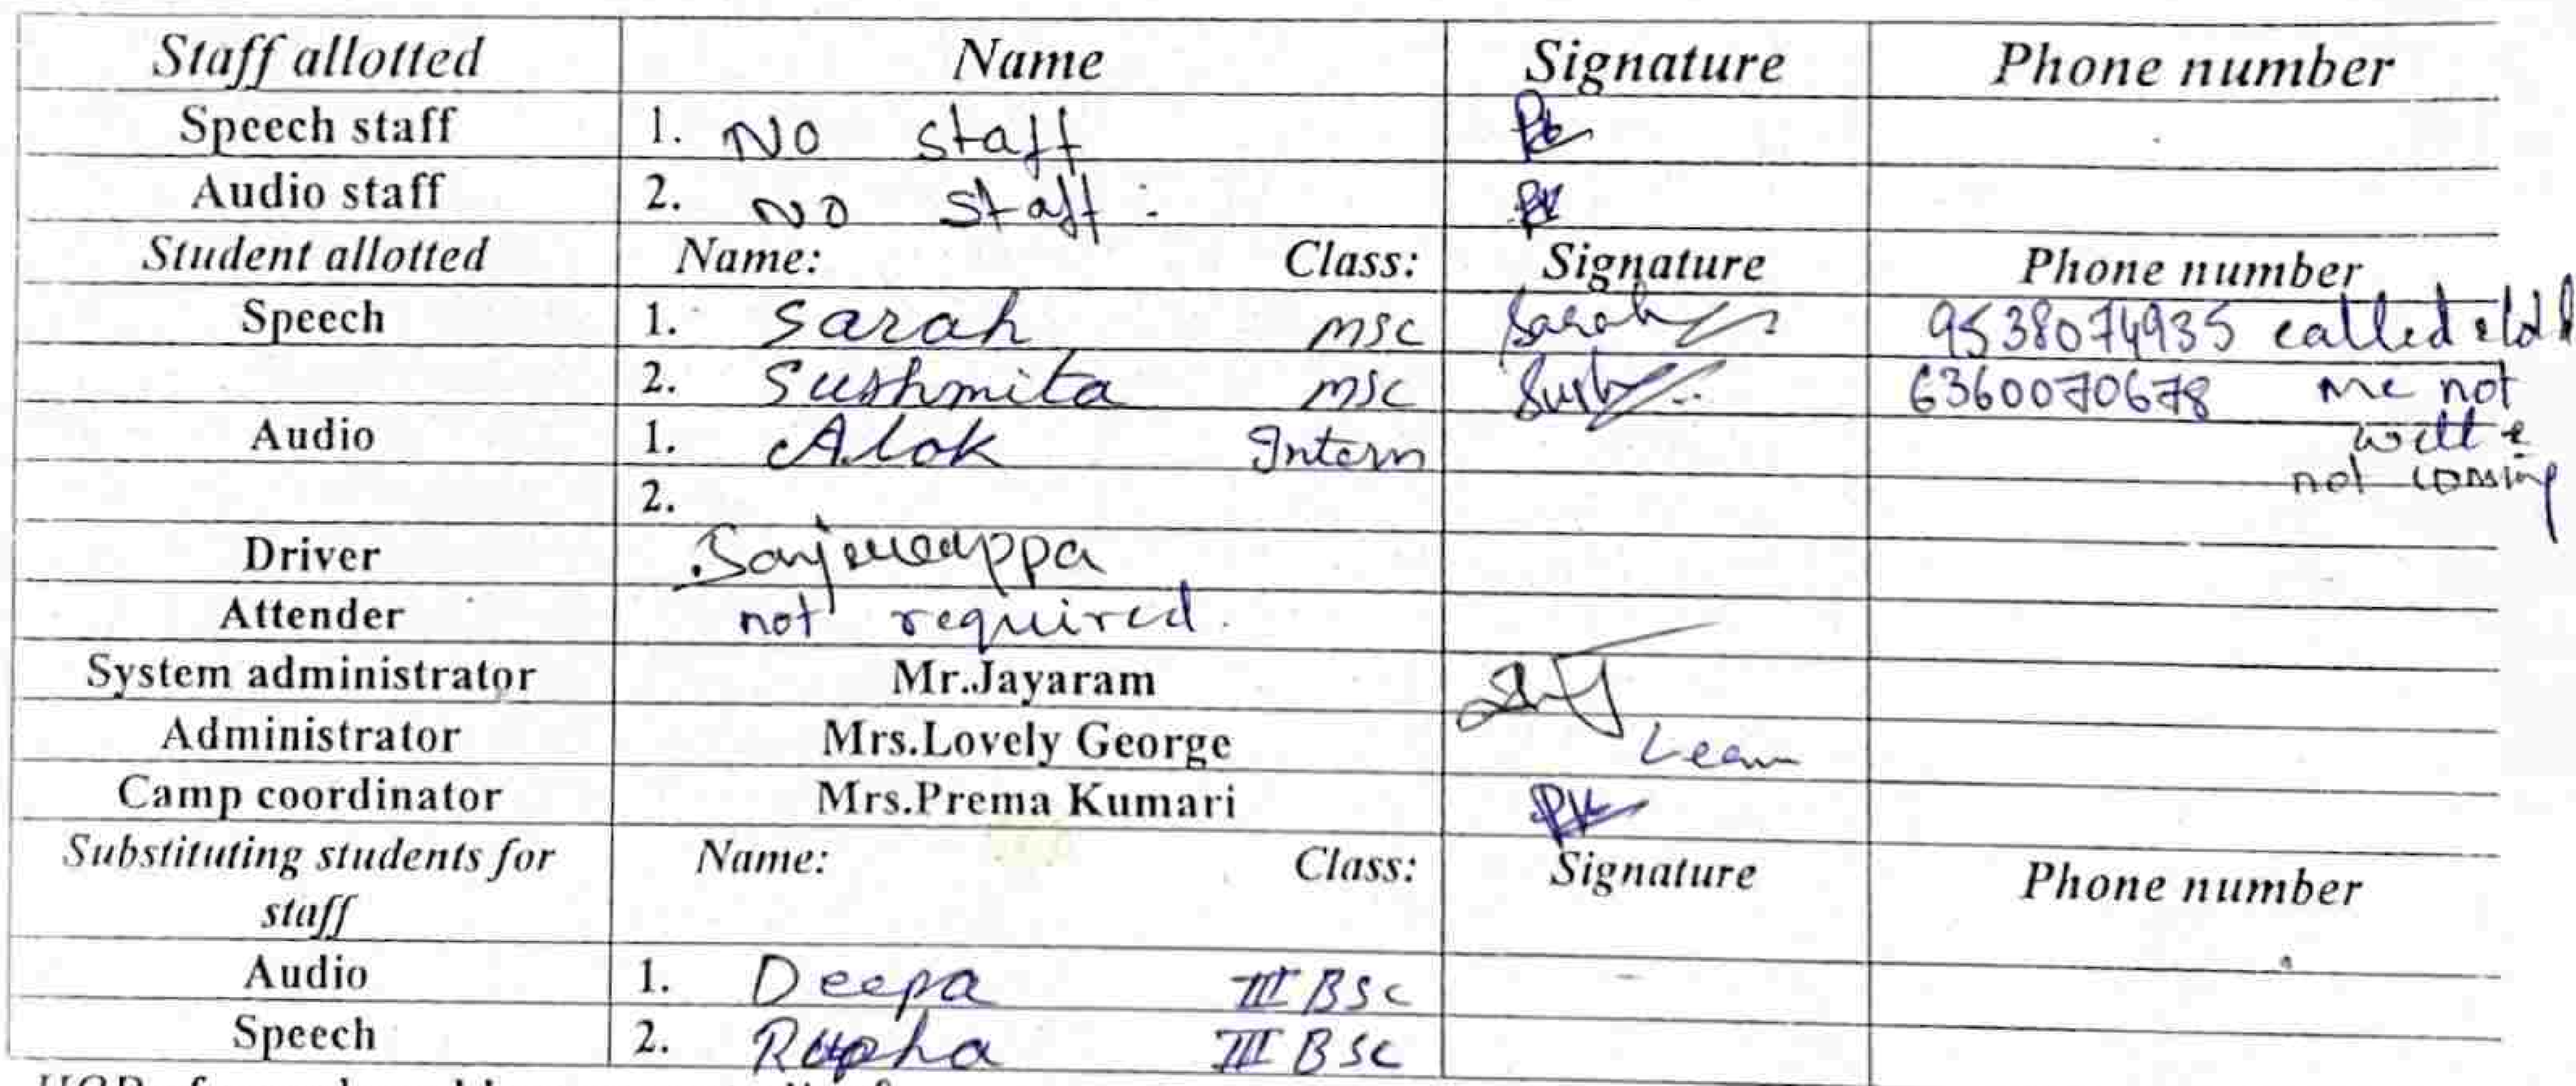 Staff allotted Name Signature Phone number
Speech staff 1. NO staff
Audio staff 2. NO staff.
Student allotted Name: Class: Signature Phone number
Speech 1. Sarah MSC Sarah 9538074935 called & told
2. Sushmita MSC 6360070678 me not
Audio 1. Alok Intern well &
2. not coming
Driver
Attender not required.
System administrator Mr.Jayaram
Administrator Mrs.Lovely George
Camp coordinator Mrs.Prema Kumari PK
Substituting students for Name: Class: Signature Phone number
staff
Audio 1. Deepa III BSC
Speech 2. III BSC